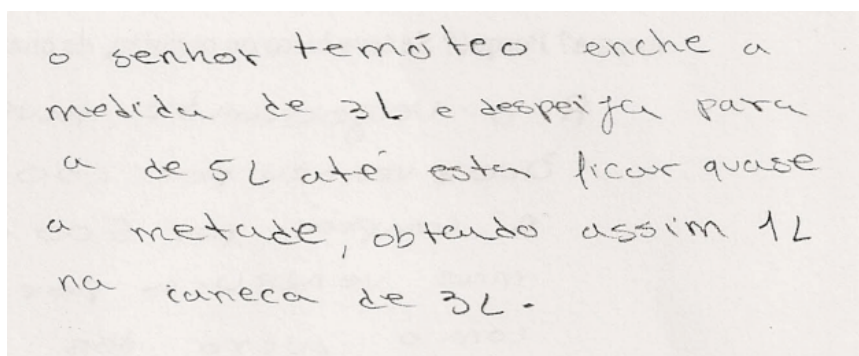 o senhor temóteo enche a
medida de 3L e despeija para
a de 5L até esta ficar quase
a metade, obtendo assim 1L
na caneca de 3L.